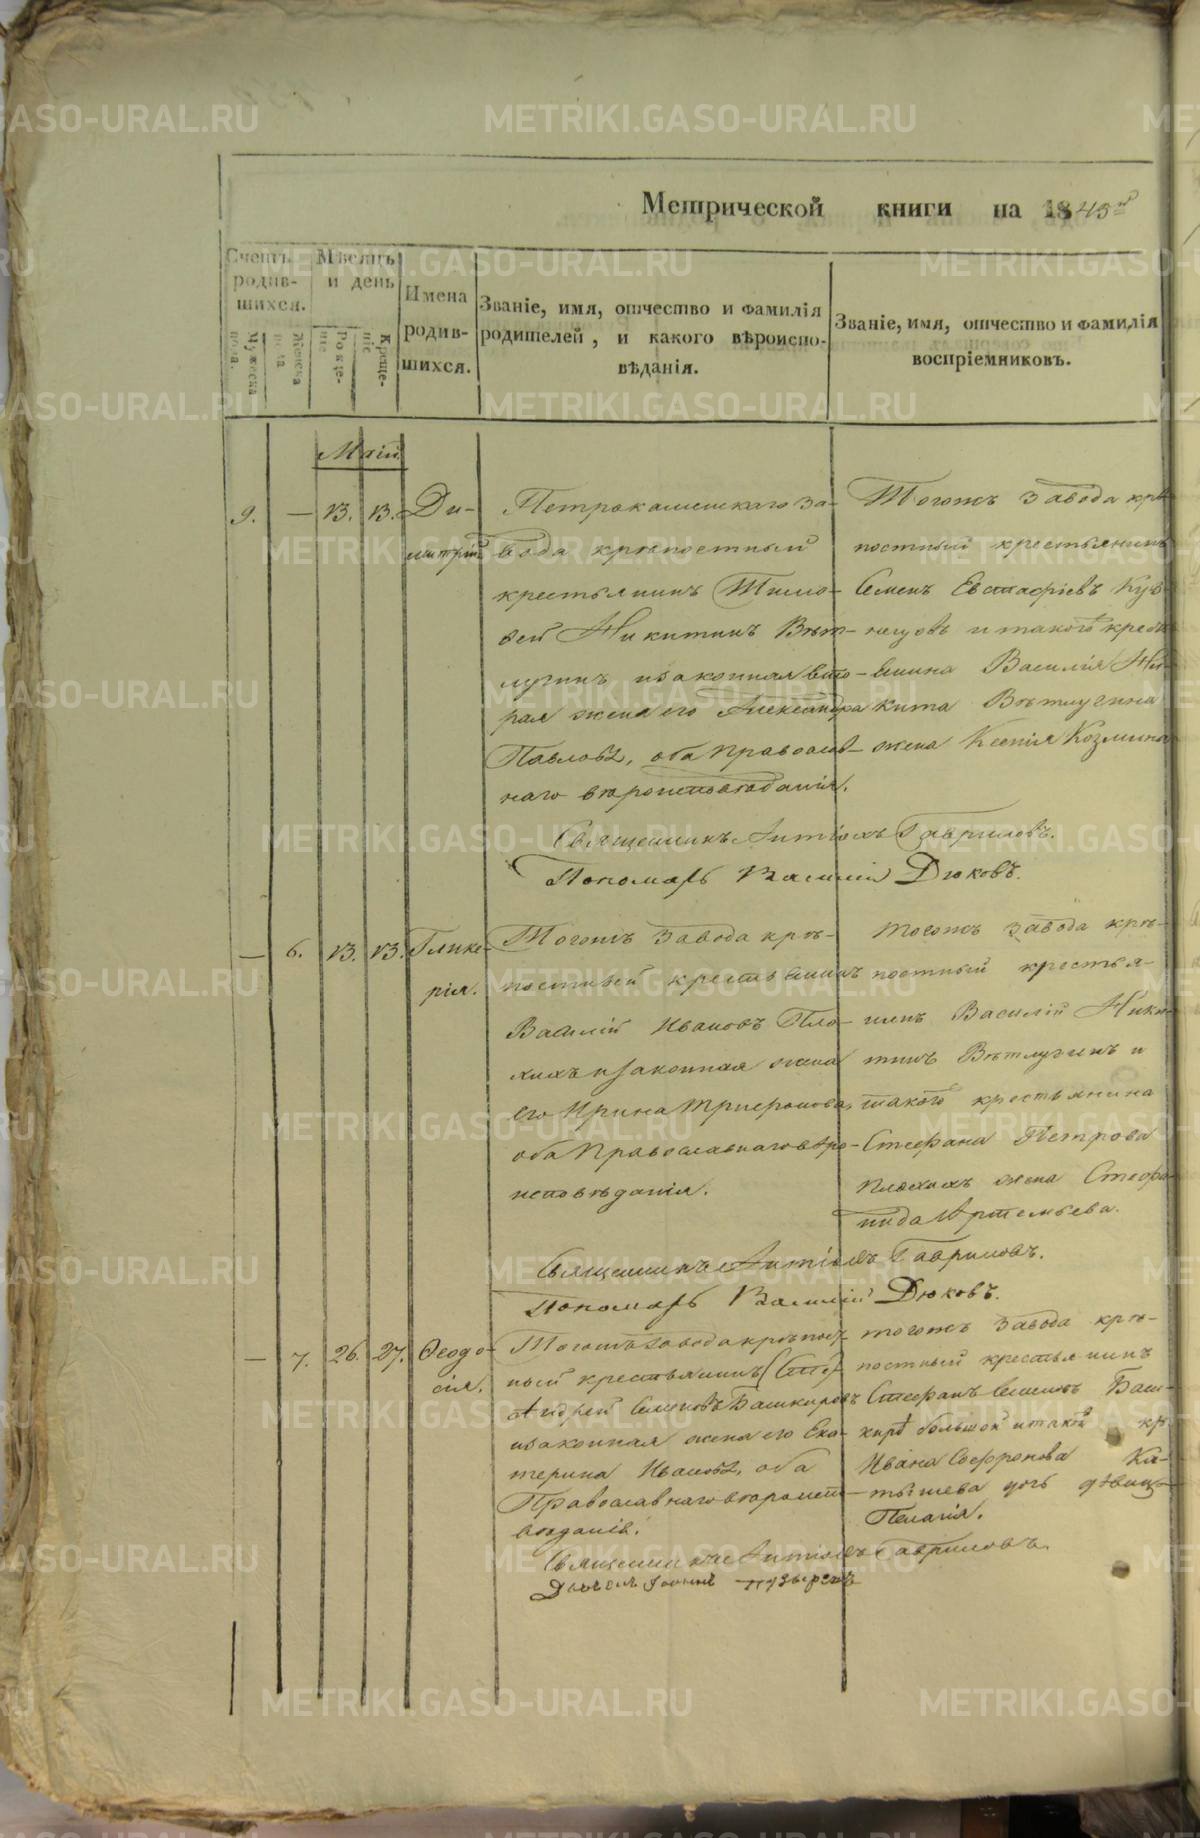 Метрической книги на 1843й
Счетъ родив-
шихся.
Мужеска пола.
Женска пола
Мѣсяцъ
и день
Рожде-
ніе
Креще-
ніе
Имена
родив-
шихся.
Званіе, имя, отчество и фамилія
родителей, и какого вѣроиспо-
вѣданія.
Званіе, имя, отчество и фамилія
воспріемниковъ.
Маій
9. — 13. 13. Ди-
митрій
Петрокаменскаго за-
вода крѣпостный
крестьянинъ Тимо-
фей Никитинъ Вѣт-
лугинъ и законная вто-
рая жена его Александра
Павлова, оба православ-
наго вѣроисповѣданія.
Тогожъ завода крѣ-
постный крестьянинъ
Семенъ Евстафіевъ Куз-
нецовъ и такогожъ кресть-
янина Василія Ни-
кита Вѣтлугина
жена Ксенія Козмина
Священникъ Антіохъ Гавриловъ.
Пономарь Василій Дюковъ.
— 6. 13. 13. Глике-
рія.
Тогожъ завода крѣ-
постный крестьянинъ
Василій Ивановъ Пло-
хихъ и законная жена
его Ирина Трифонова,
оба Православнаго вѣро-
исповѣданія.
тогожъ завода крѣ-
постный крестья-
нинъ Василій Ники-
тинъ Вѣтлугинъ и
такого крестьянина
Стефана Петрова
Плохихъ жена Стефа-
нида Артемьева.
Священникъ Антіохъ Гавриловъ.
Пономарь Василій Дюковъ.
— 7. 26. 27. Ѳеодо-
сія.
Тогожъ завода крѣпост-
ный крестьянинъ (Сте)
Андрей Семеновъ Башкировъ
и законная жена его Ека-
терина Иванова, оба
Православнаго вѣроиспо-
вѣданія.
тогожъ завода крѣ-
постный крестьянинъ
Стефанъ Семеновъ Баш-
кировъ большой и такогожъ кр
Ивана Софронова Ка-
тышева дочь дѣвица
Пелагія.
Священникъ Антіохъ Гавриловъ.
Дьяконъ Іоаннъ Пузыревъ
METRIKI.GASO-URAL.RU